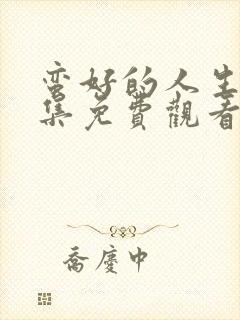 蛮好的人生
集免費觀看
喬慶中